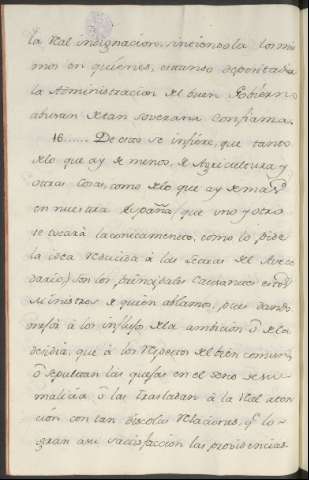 la Real indignacion, siniendola los mis
mos en quienes, estando depositada
la Administracion del buen Gobierno
abusan de tan soverana confianza.
16...... De esto se infiere, que tanto
de lo que ay de menos, de Agricultura, y
otras Cosas, como de lo que ay de mas,
en nuestra España (que uno y otro
se tocará laconicamente, como lo pide
la idea reducida à las Letras del Avece
dario) son los principales Causantes estos
Ministros de quien ablamos, pues dando
mejor à los influjos de la ambicion ô de la
desidia, que à los respectos del bien comun,
ô sepultan las quejas en el seno de su
malicia ô las trasladan à la Real aten
cion con tan discolas relaciones, q.e lo
gran a su satisfaccion las providencias